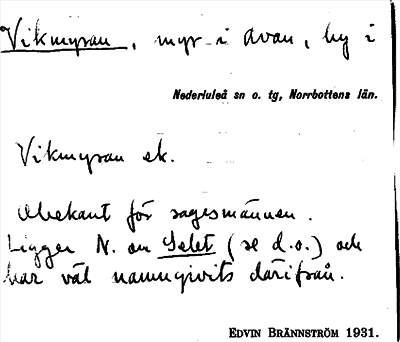 Vikmyran, myr i Avan, by i
Nederluleå sn o. tg, Norrbottens län.
Vikmyran ek.
Obekant för sagesmännen.
Ligger N. om Selet (se d.o.) och
har väl namngivits därifrån.
EDVIN BRÄNNSTRÖM 1931.